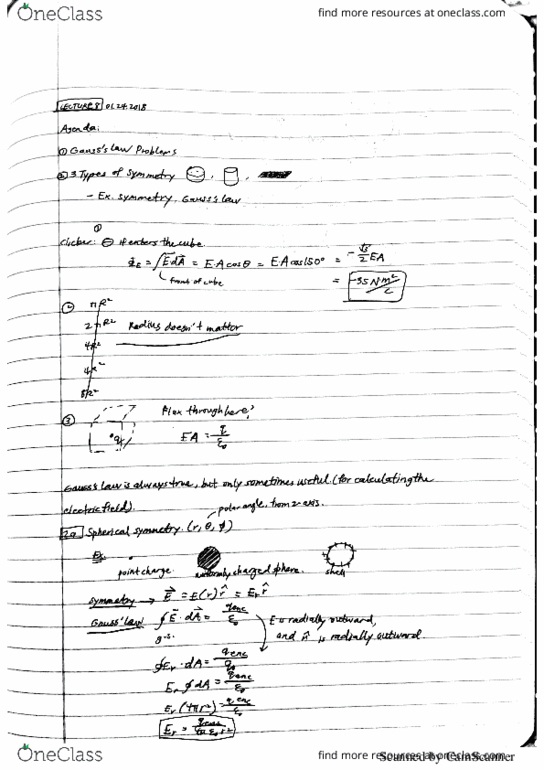 OneClass
find more resources at oneclass.com
LECTURE 8 01.24.2018
Agenda:
① Gauss's law Problems
② 3 Types of symmetry
- Ex. symmetry, Gauss's law
①
Clicker: ⊖ if enters the cube
Φ_E = ∫E·dA = EA cosθ = EA cos150° = -√3/2 EA
front of cube
= -35 Nm²/C
② πR²
2πR² Radius doesn't matter
③ Flux through here?
EA = q/ε₀
Gauss's law is always true, but only sometimes useful (for calculating the
electric field).
polar angle, from z-axis.
2a Spherical symmetry. (r, θ, φ)
Ex.
point charge. uniformly charged sphere. shell
Symmetry → E = E(r) r̂ = E_r r̂
Gauss' law ∮E·dA = q_enc/ε₀
E is radially outward,
g.s. and n̂ is radially outward.
E_r ∮dA = q_enc/ε₀
E_r (4πr²) = q_enc/ε₀
OneClass
find more resources at oneclass.com
Scanned by CamScanner